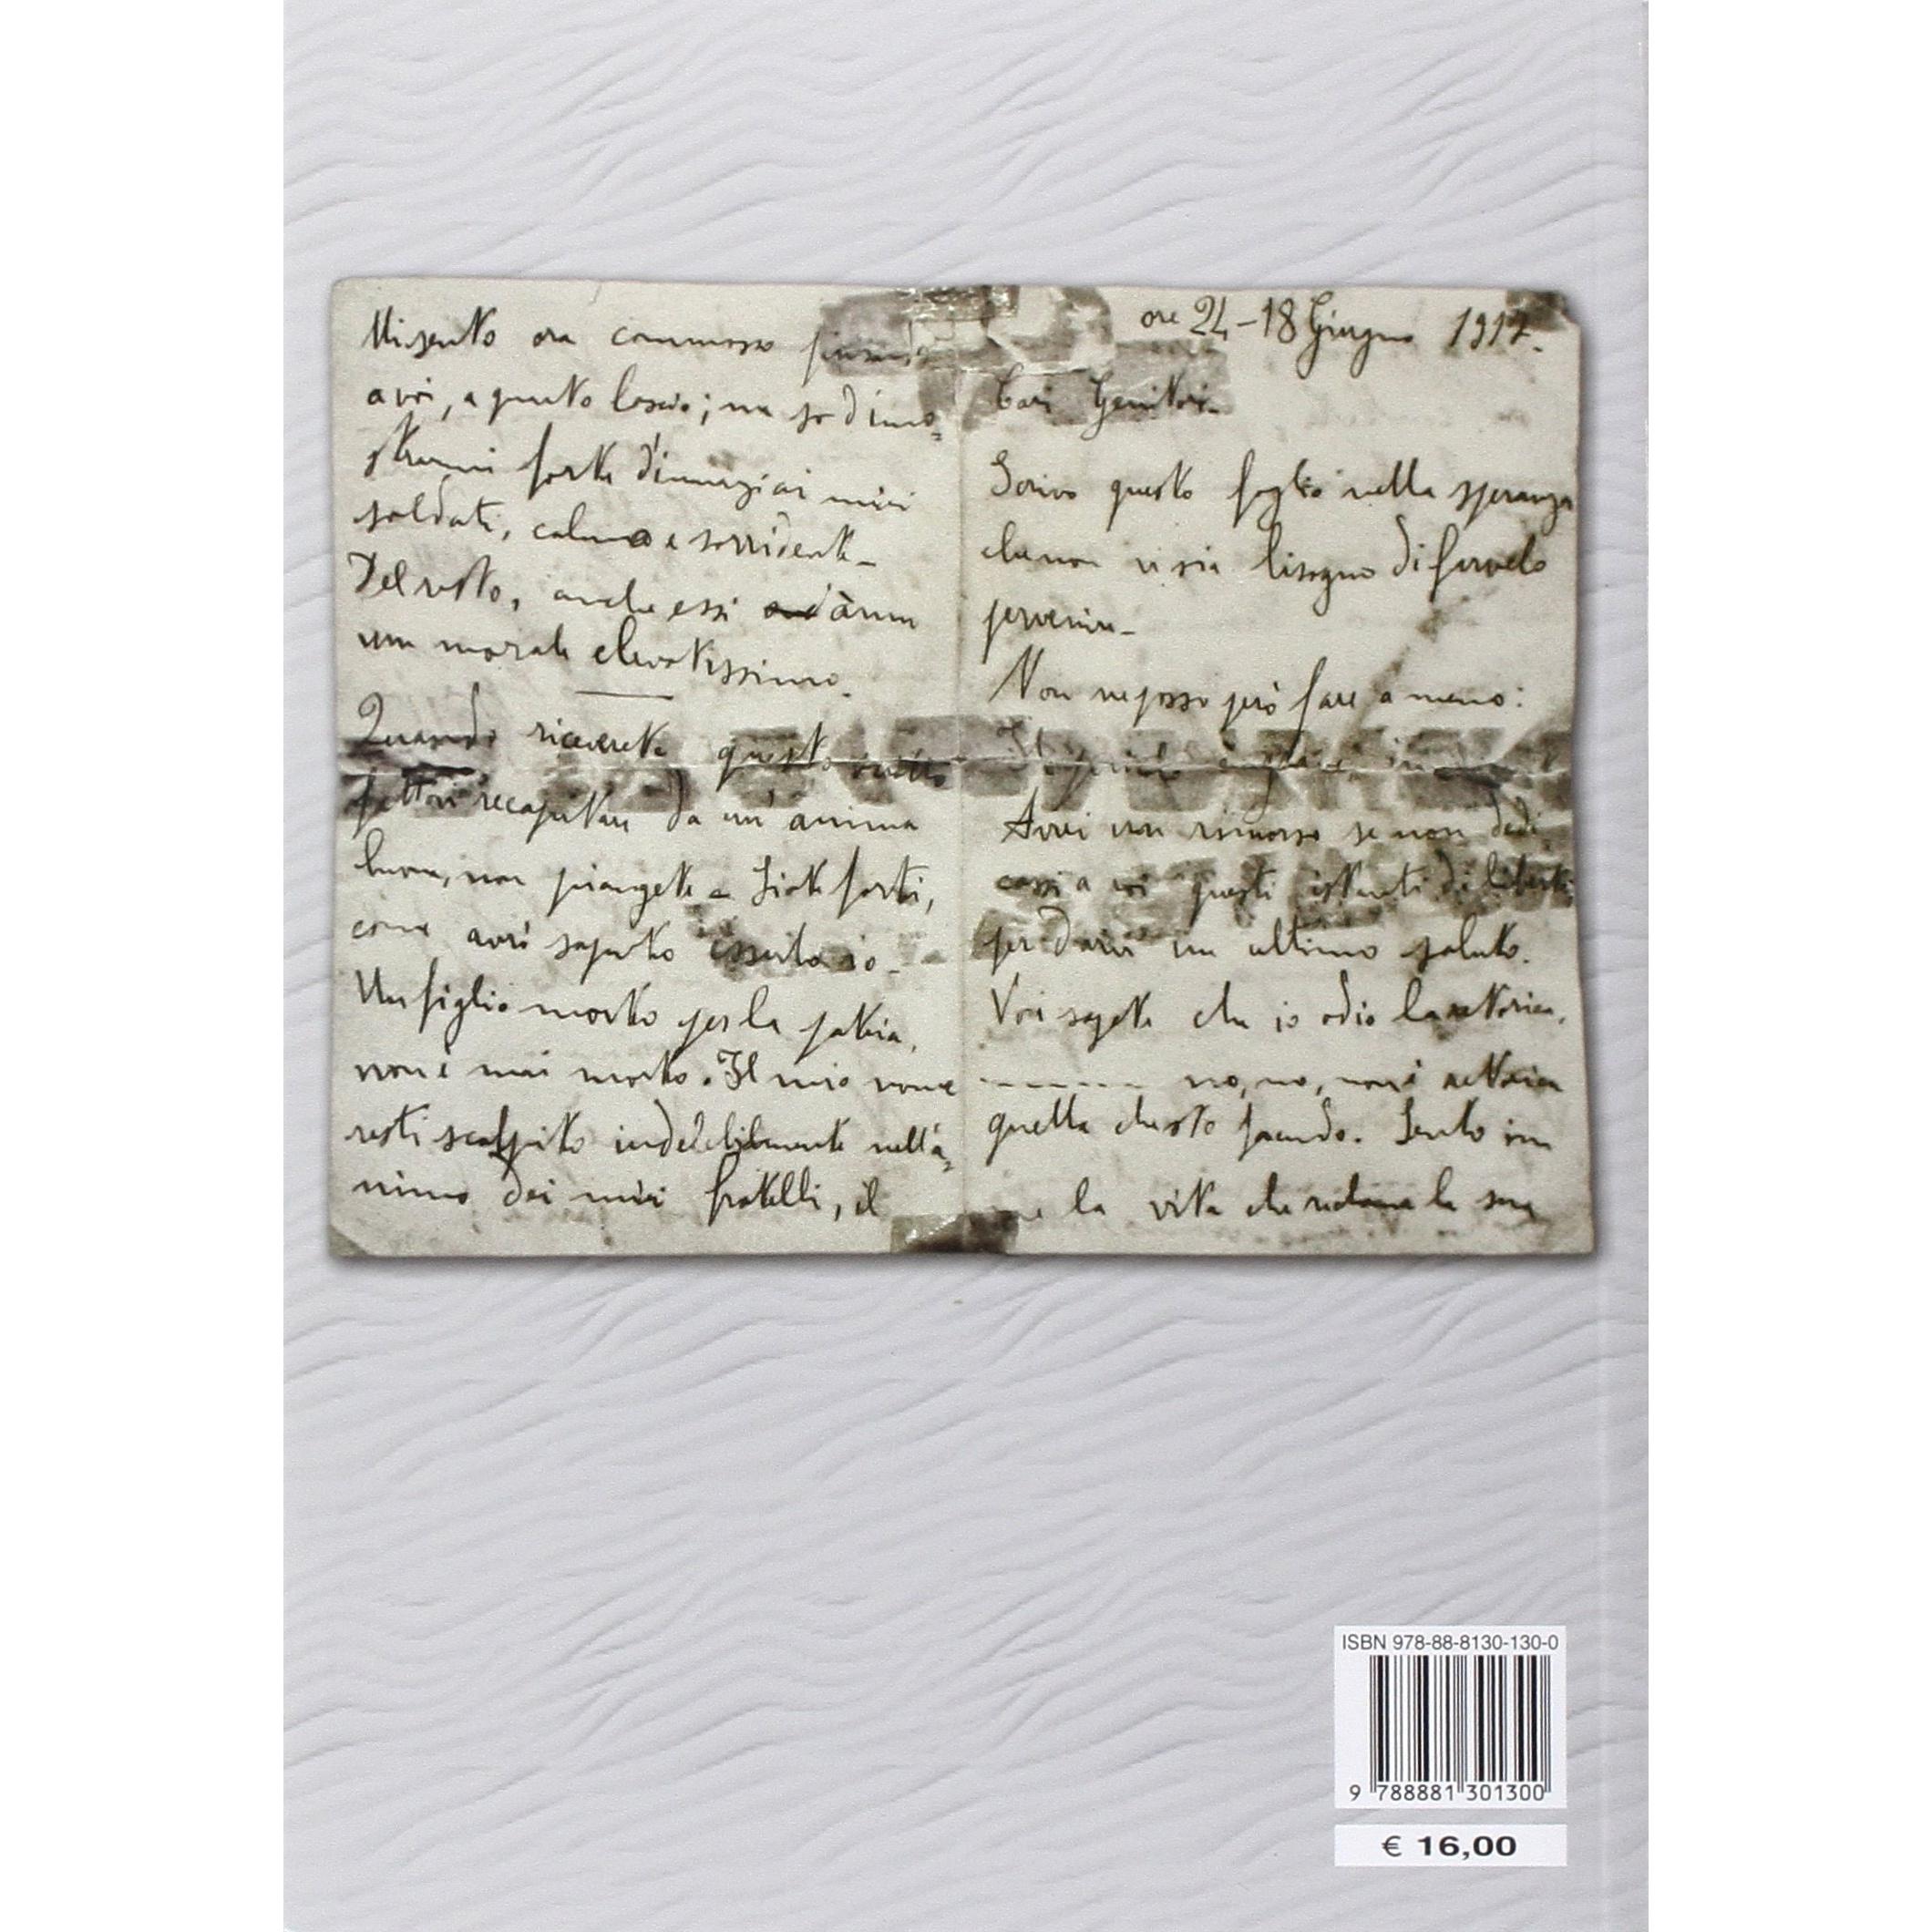 Mi sento ora commosso
a voi, a quanto lascio; ma so dimo=
strarmi forte dinnanzi ai miei
soldati, calmo e sorridente_
Del resto, anche essi ànno
un morale elevatissimo.
Quando riceverete questo scritto
fattovi recapitare da un'anima
buona, non piangete_ Siate forti,
come avrò saputo esserlo io_
Un figlio morto per la patria,
non è mai morto. Il mio nome
resti scolpito indelebilmente nell'a=
nimo dei miei fratelli, il
ore 24-18 Giugno 1917.
Cari Genitori_
Scrivo questo foglio nella speranza
che non vi sia bisogno di farvelo
pervenire_
Non ne posso però fare a meno:
Il pericolo è grave
Avrei un rimorso se non dedi
cassi a voi questi istanti di libertà
per darvi un ultimo saluto.
Voi sapete che io odio la retorica,
------- no, no, non è retorica
quella che sto facendo. Sento in
me la vita che reclama la sua
ISBN 978-88-8130-130-0
9 788881 301300
€ 16,00